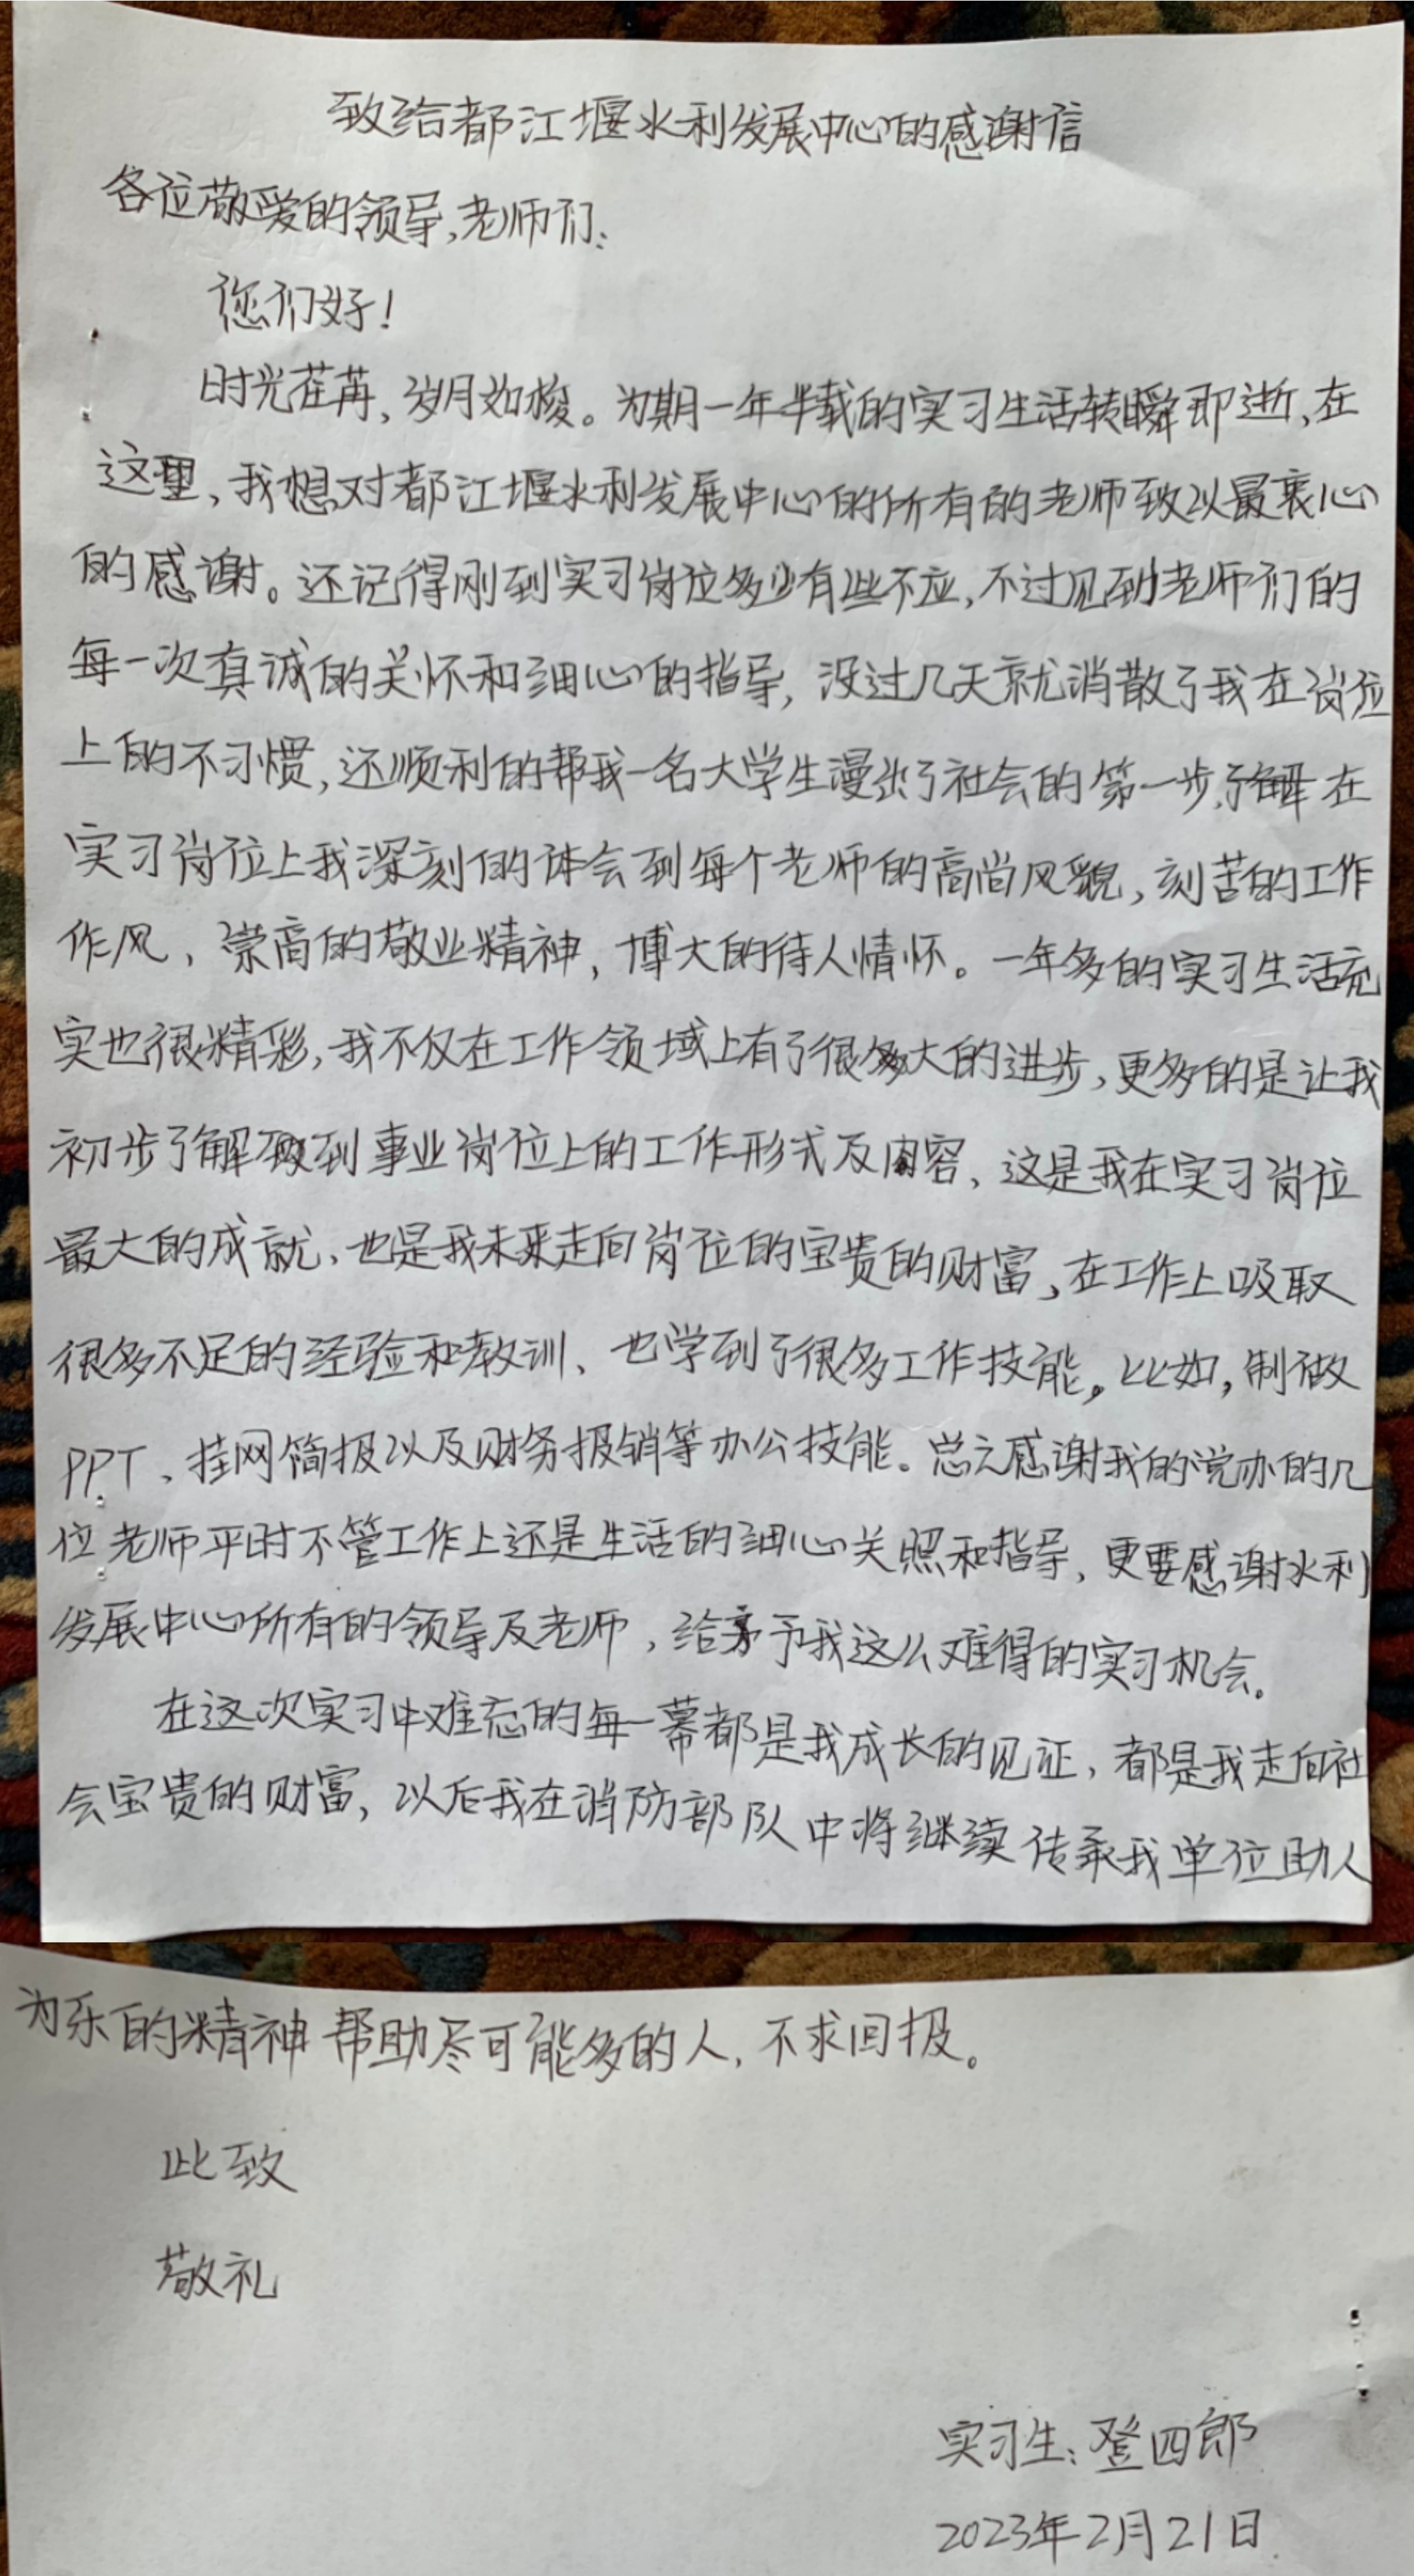 致给都江堰水利发展中心的感谢信
各位敬爱的领导,老师们:
您们好!
时光荏苒,岁月如梭。为期一年半载的实习生活转瞬即逝,在
这里,我想对都江堰水利发展中心的所有的老师致以最衷心
的感谢。还记得刚到实习岗位多少有些不应,不过见到老师们的
每一次真诚的关怀和细心的指导,没过几天就消散了我在岗位
上的不习惯,还顺利的帮我一名大学生漫出了社会的第一步,了解在
实习岗位上我深刻的体会到每个老师的高尚风貌,刻苦的工作
作风、崇高的敬业精神,博大的待人情怀。一年多的实习生活充
实也很精彩,我不仅在工作领域上有了很大的进步,更多的是让我
初步了解到事业岗位上的工作形式及内容、这是我在实习岗位
最大的成就、也是我未来走向岗位的宝贵的财富、在工作上吸取
很多不足的经验和教训、也学到了很多工作技能。比如,制做
PPT、挂网简报以及财务报销等办公技能。总之感谢我的党办的几
位老师平时不管工作上还是生活的细心关照和指导,更要感谢水利
发展中心所有的领导及老师,给予我这么难得的实习机会。
在这次实习中难忘的每一幕都是我成长的见证,都是我走向社
会宝贵的财富,以后我在消防部队中将继续传承我单位助人
为乐的精神帮助尽可能多的人,不求回报。
此致
敬礼
实习生:登四郎
2023年2月21日